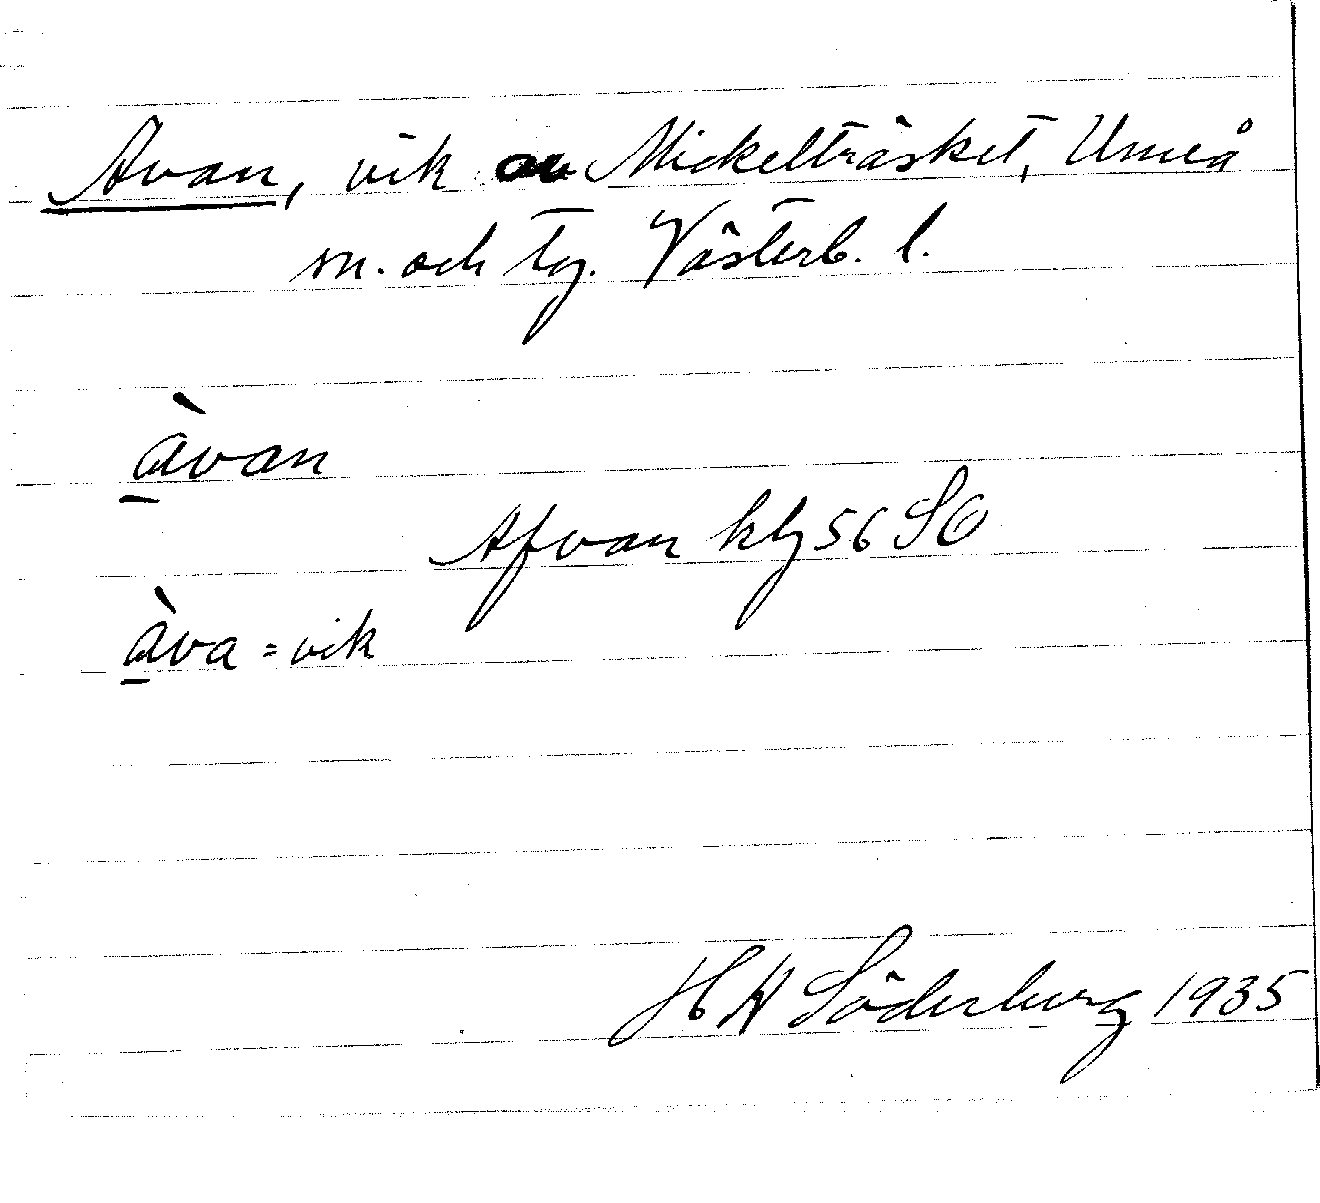 Avan, vik av Mickelträsket, Umeå
sn. och tg. Västerb. l.
a̠̍̀van
Afvan kbl 56 SO
a̠̍̀va = vik
H W Söderberg 1935